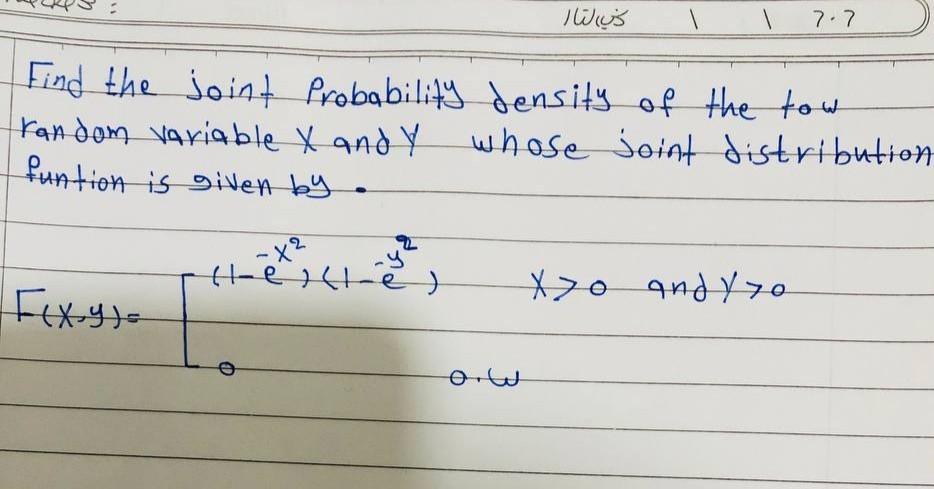 التاريخ / / 202
Find the joint Probability density of the tow
random variable X and Y whose joint distribution
funtion is given by .
F(x,y)= [ (1-e^{-x^2})(1-e^{-y^2}) X>0 and Y>0
0 0.w